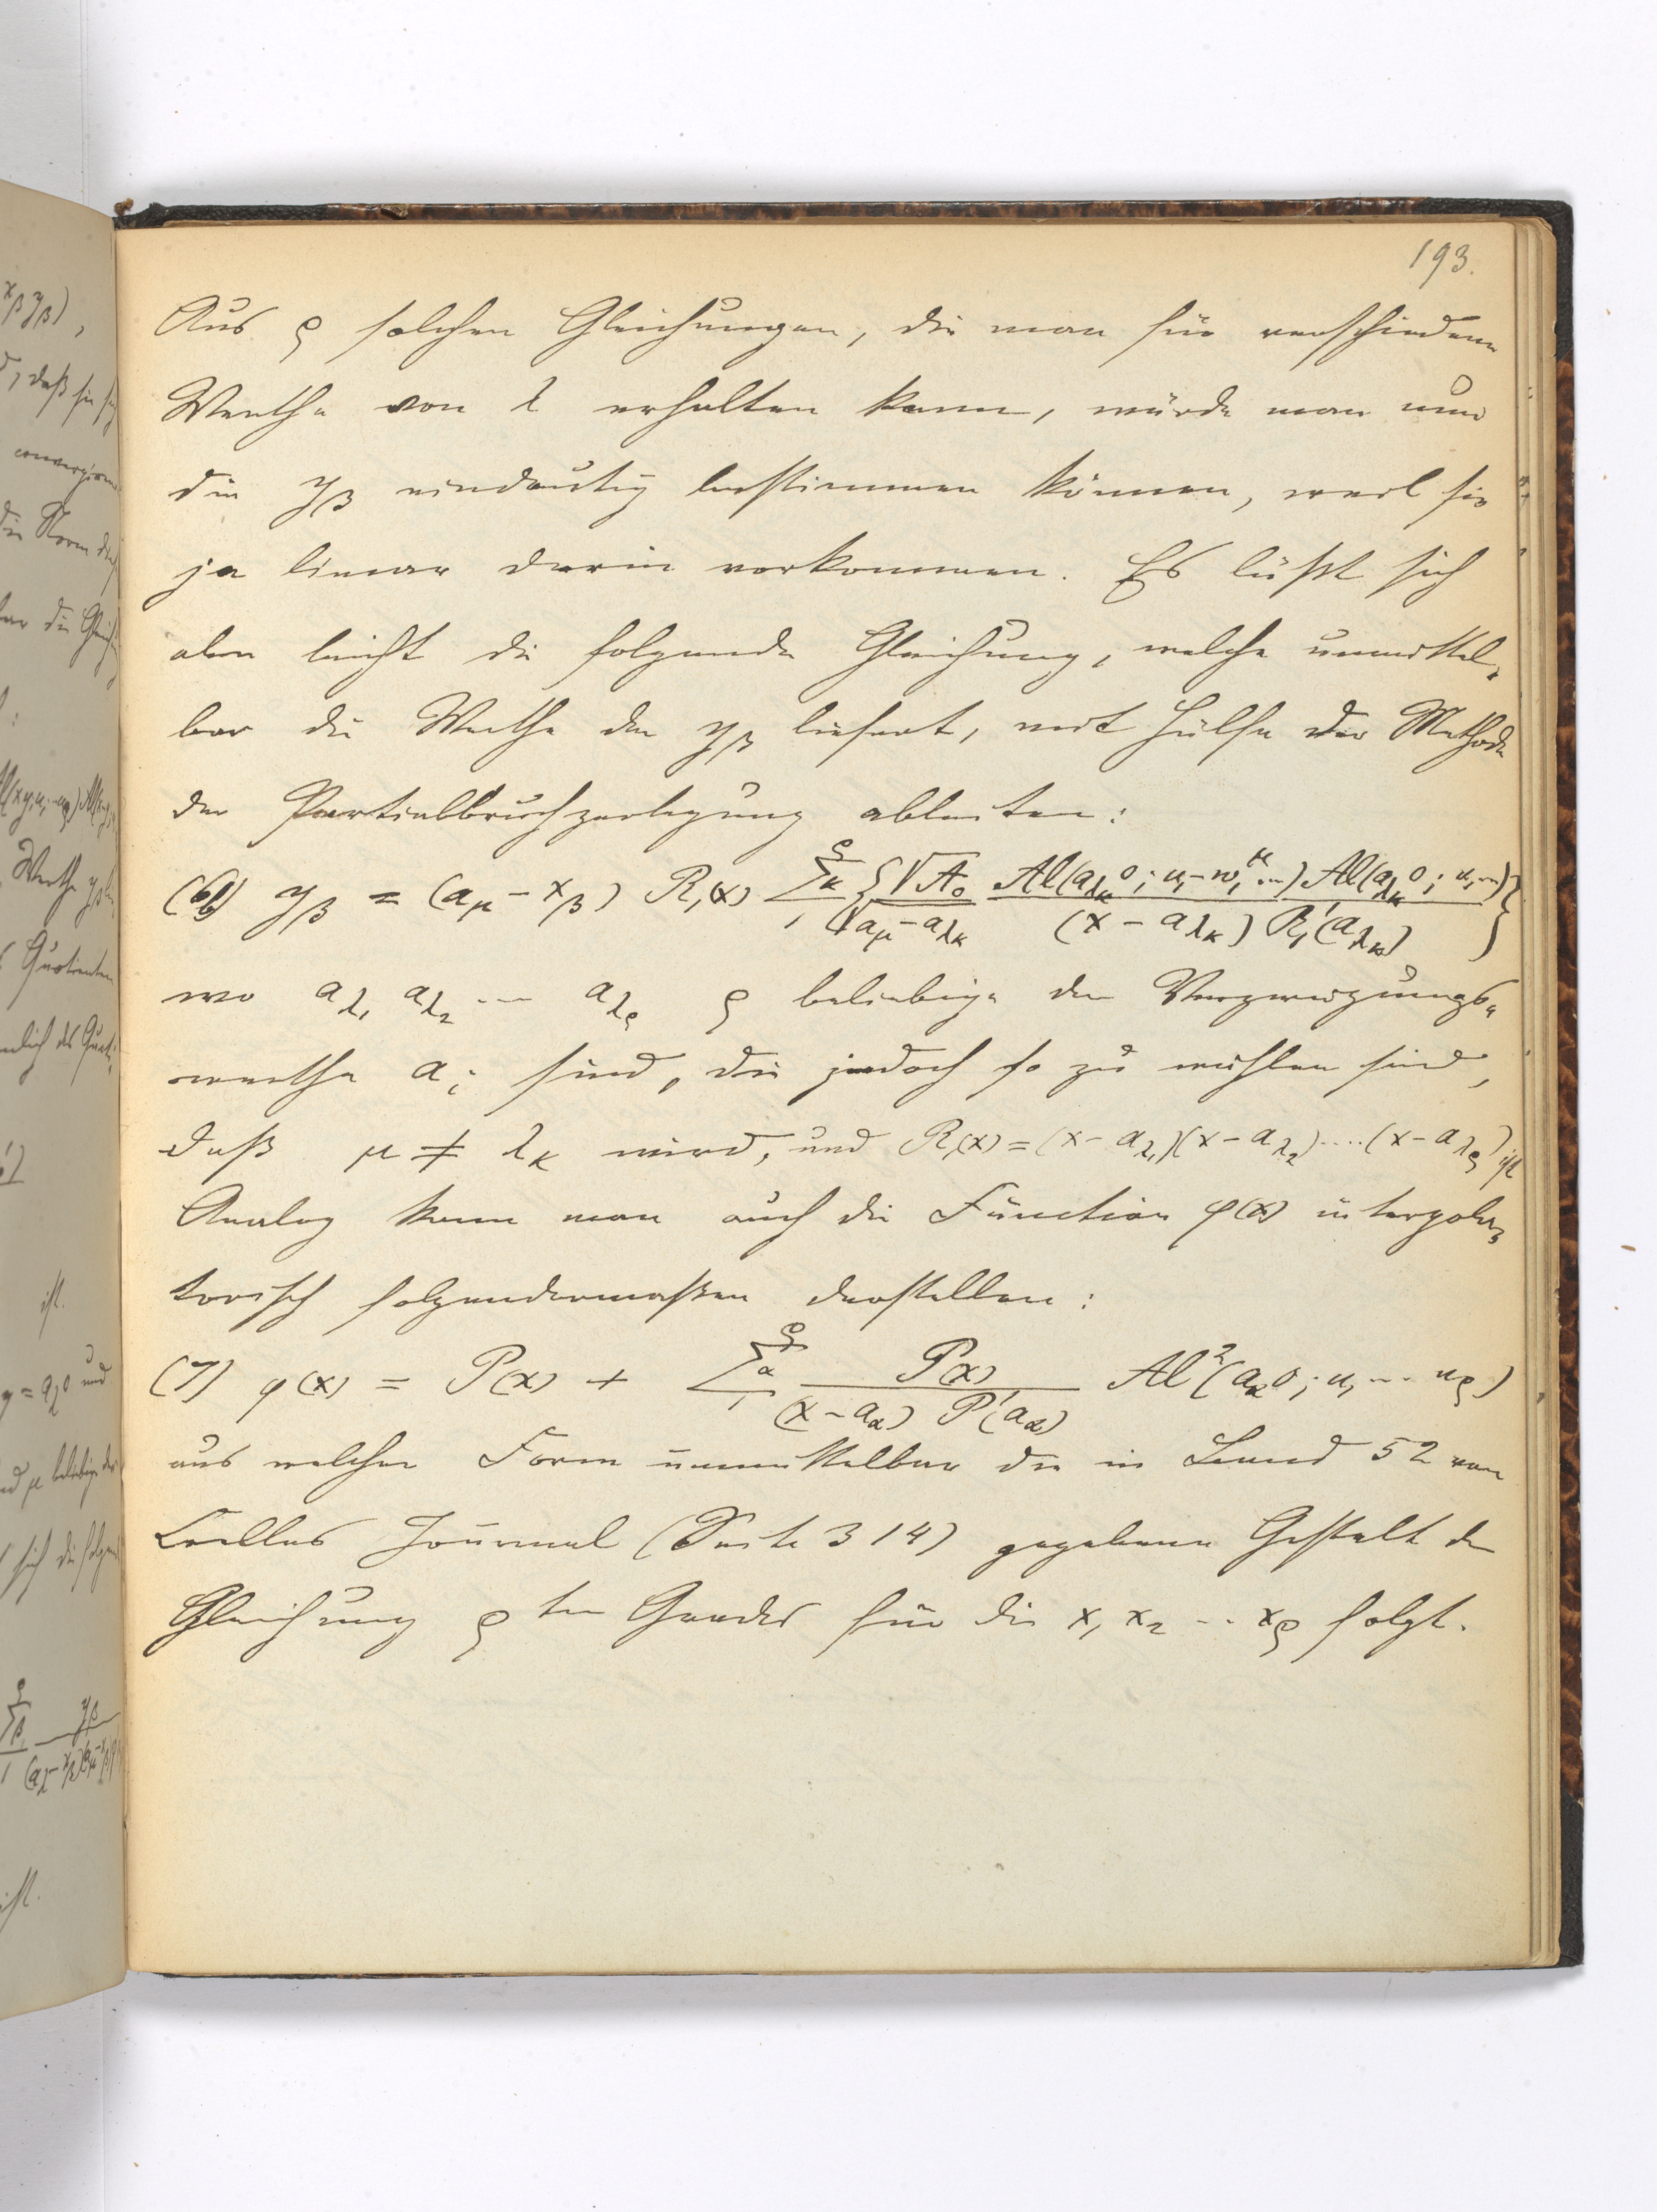 193.
Aus ρ solchen Gleichungen, die man für verschiedene
Werthe von λ erhalten kann, würde man nun
die y_β eindeutig bestimmen können, weil sie
ja linear darin vorkommen. Es läßt sich
aber leicht die folgende Gleichung, welche unmittel-
bar die Werthe der y_β liefert, mit Hülfe der Methode
der Partialbruchzerlegung ableiten:
(6b) y_β = (a_μ - x_β) R_1(x) Σ_κ=1^ρ { √A_0 / √(a_μ - a_λκ) · Al(a_λκ 0; u_1 - w_1^μ ...) Al(a_λκ 0; u_1 ...) / ((x - a_λκ) R_1'(a_λκ)) }
wo a_λ1 a_λ2 ... a_λρ ρ beliebige der Verzweigungs-
werthe a_i sind, die jedoch so zu wählen sind,
daß μ ≠ λ_κ wird, und R_1(x) = (x - a_λ1)(x - a_λ2)....(x - a_λρ) ist
Analog kann man auch die Function φ(x) interpola-
torisch folgendermaßen darstellen:
(7) φ(x) = P(x) + Σ_α=1^ρ P(x) / ((x - a_α) P'(a_α)) Al²(a_α 0; u_1 ... u_ρ)
aus welcher Form unmittelbar die in Band 52 von
Crelles Journal (Seite 314) gegebene Gestalt der
Gleichung ρten Grades für die x_1 x_2 .. x_ρ folgt.